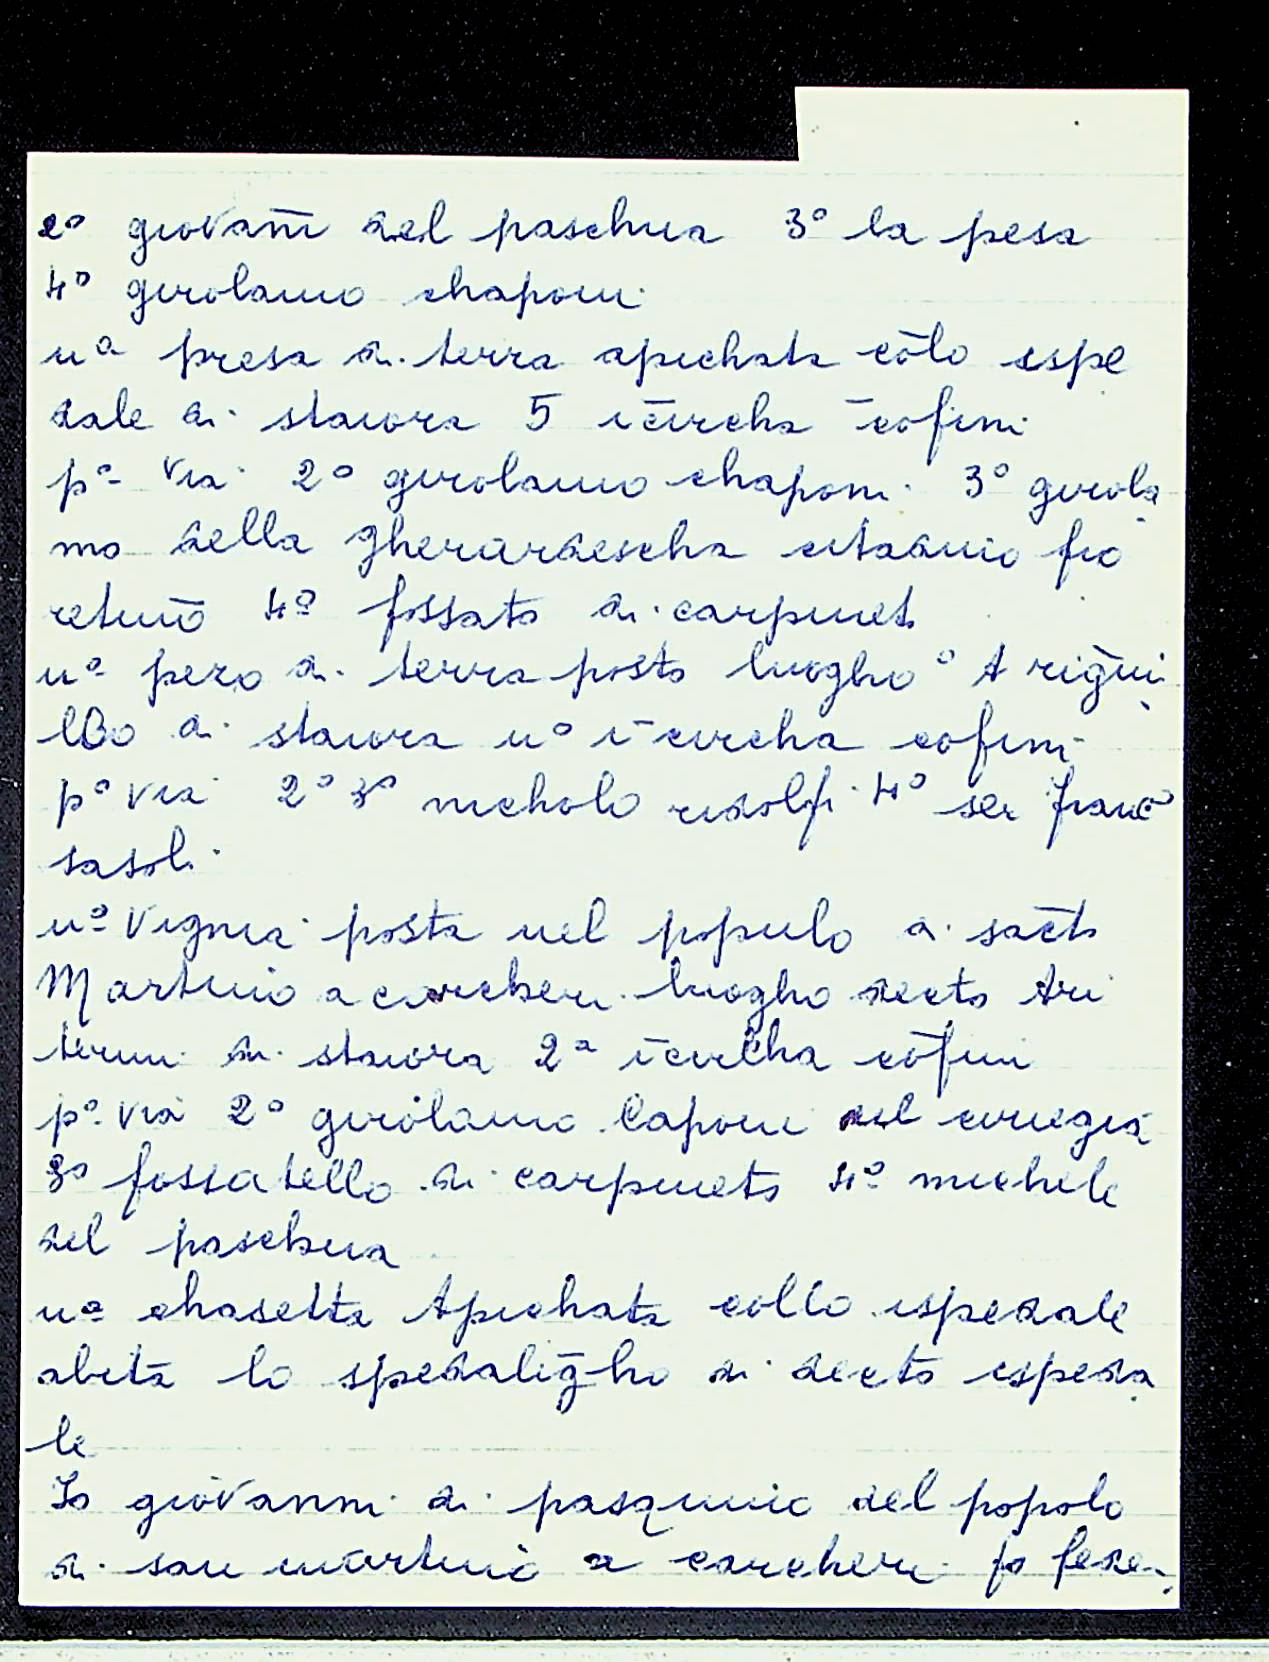 2° giovan̄i del paschua 3° la pesa
4° girolamo chaponi
uª presa di terra apichata cōlo espe
dale di staiora 5 īcircha cōfini
p° via 2° girolamo chaponi 3° girola
mo della gherardescha citadino fio
retino 4° fossato di carpineto
uª pezo di terra posto luogho ° A rig̃ui
lBo di staiora u° ī circha cofini
p° via 2° 3° nicholo ridolfi 4° ser franc°
sasoli
uª vignia posta nel popolo di sāct°
Martino a carcheri luogho decto Ari
termi di staiora 2ª īcircha cōfini
p° via 2° girolamo Caponi del ciriegia
3° fossatello di carpineto 4° michele
del paschua
uª chasetta Apichata collo ispedale
abita lo spedaligho di decto ispeda
le
Io giovanni di pasquino del popolo
di san martino a carcheri fo fede